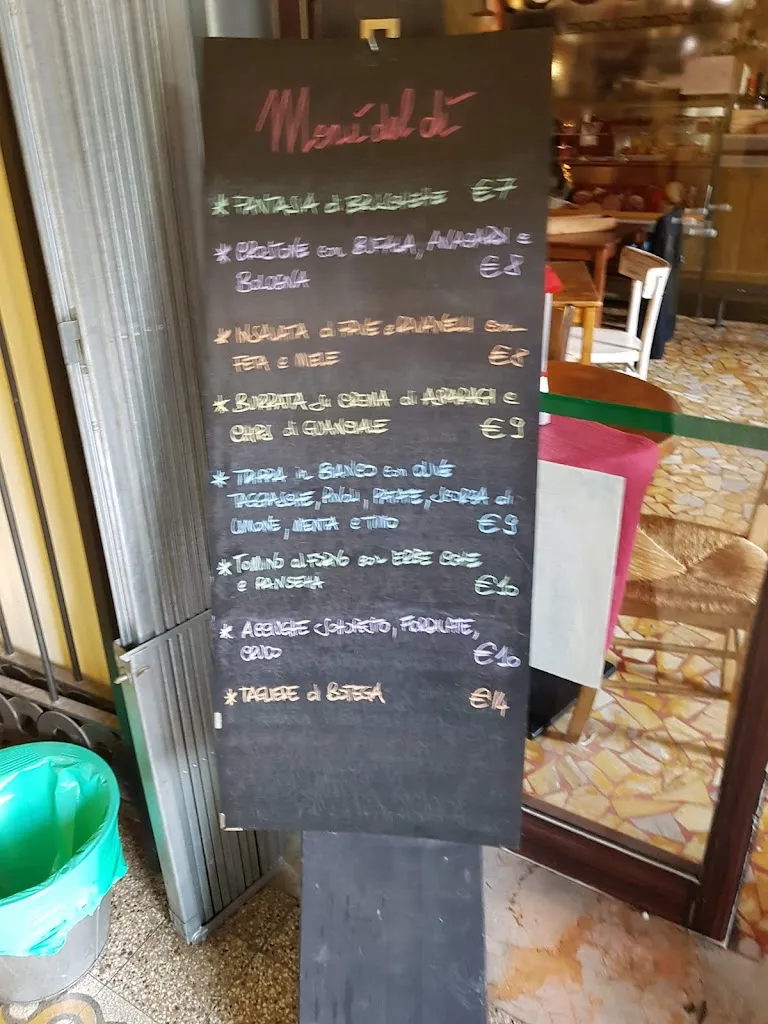 Menú del dì
* FANTASIA di BRUSCHETTE €7
* CROSTONE con BUFALA, ANACARDI e
€8
* INSALATA di FAVE e RAVANELLI con
FETA e MIELE €8
* BURRATA su CREMA di ASPARAGI e
CHIPS di GUANCIALE €9
* in BIANCO con OLIVE
TAGGIASCHE, PINOLI, PATATE, SCORZA di
LIMONE, MENTA e TIMO €9
* TOMINO al FORNO con ERBE COTTE
e PANCETTA €10
* ACCIUGHE
CRUDO €10
* TAGLIERE di BOTTEGA €14